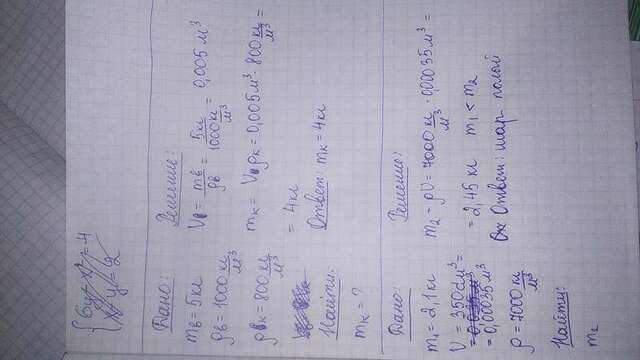 Дано:
mв = 5кг
ρв = 1000 кг/м³
ρк = 800 кг/м³
Найти:
mк = ?
Решение:
Vв = mв/ρв = 5кг/1000 кг/м³ = 0,005 м³
mк = Vв ρк = 0,005м³ · 800 кг/м³ =
= 4кг
Ответ: mк = 4кг
Дано:
m₁ = 2,1 кг
V = 350см³ =
= 0,00035м³
ρ = 7000 кг/м³
Найти:
m₂
Решение:
m₂ = ρV = 7000 кг/м³ · 0,00035 м³ =
= 2,45 кг m₁ < m₂
Ответ: шар полый